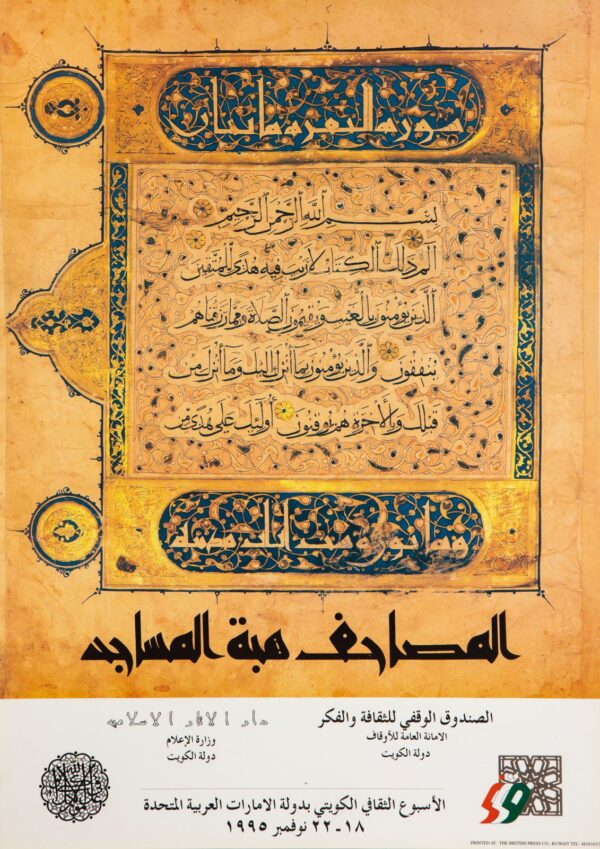 سورة البقرة مائتان
بسم الله الرحمن الرحيم
الم ذلك الكتاب لا ريب فيه هدى للمتقين
الذين يؤمنون بالغيب ويقيمون الصلاة ومما رزقناهم
ينفقون والذين يؤمنون بما أنزل إليك وما أنزل من
قبلك وبالآخرة هم يوقنون أولئك على هدى من
وثمانون وست آيات
المصاحف هبة المساجد
الصندوق الوقفي للثقافة والفكر
الامانة العامة للأوقاف
دولة الكويت
دار الاثار الاسلاميه
وزارة الإعلام
دولة الكويت
الأسبوع الثقافي الكويتي بدولة الامارات العربية المتحدة
١٨-٢٢ نوفمبر ١٩٩٥
PRINTED AT: THE BRITISH PRESS CO., KUWAIT TEL.